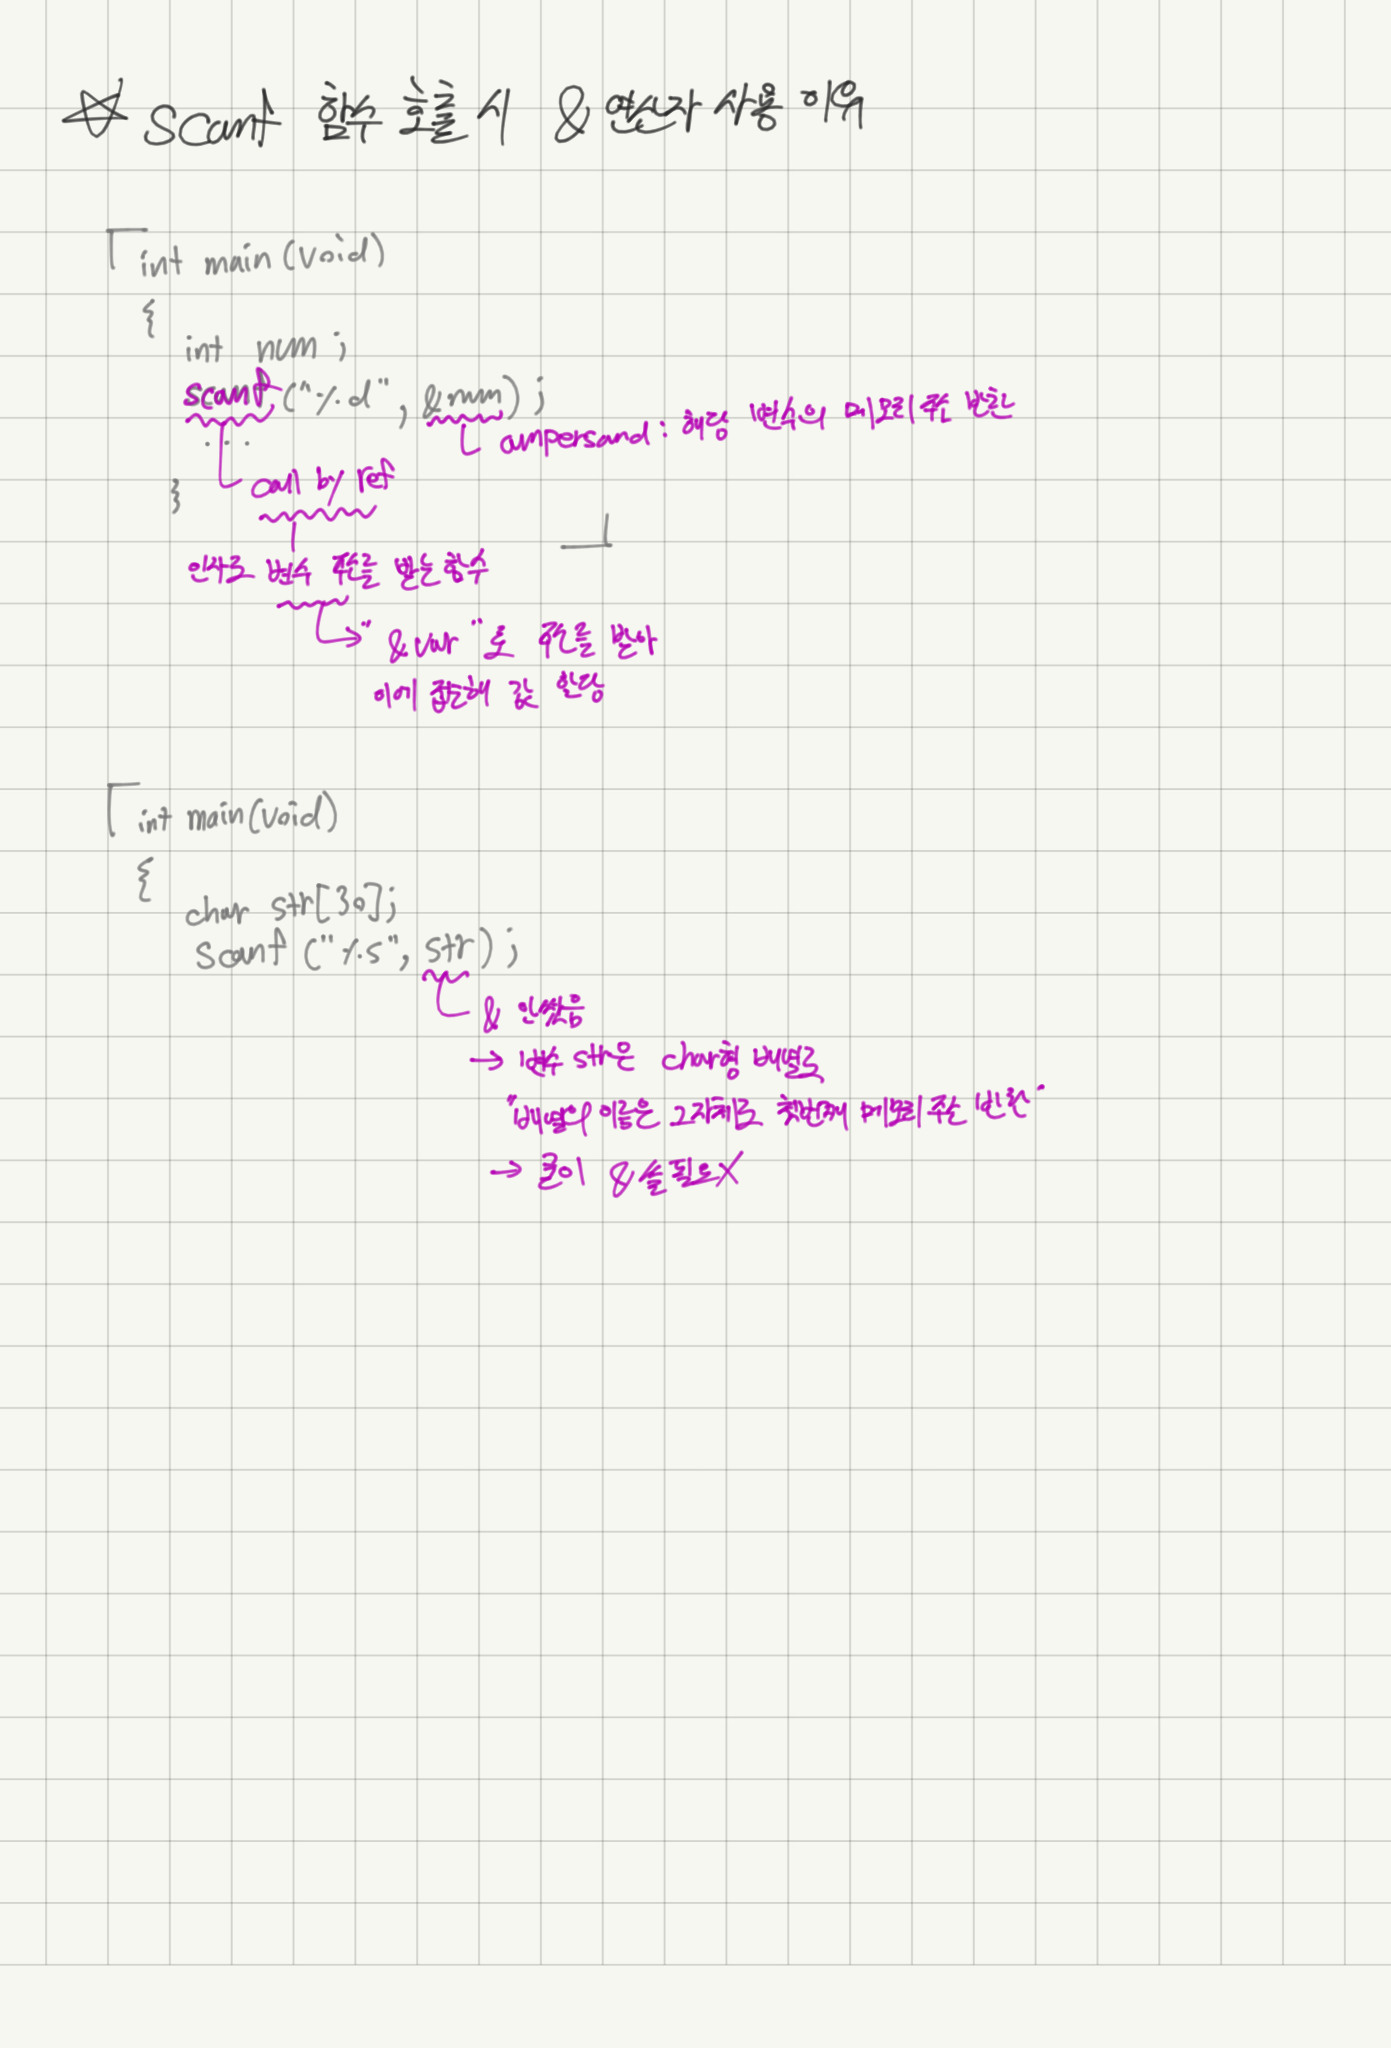 ☆ scanf 함수 호출 시 & 연산자 사용 이유
int main (void)
{
int num ;
scanf ("%d", &num) ;
ampersand : 해당 변수의 메모리 주소 반환
...
call by ref
}
인자로 변수 주소를 받는 함수
"&var"로 주소를 받아
이에 접근해 값 할당
int main(void)
{
char str[30];
scanf ("%s", str) ;
& 안썼음
→ 변수 str은 char형 배열로
"배열의 이름은 그자체로 첫번째 메모리 주소 반환"
→ 굳이 & 쓸 필요X